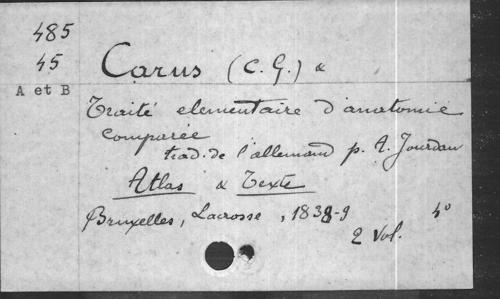 485
45
A et B
Carus (C. G.) &
Traité elementaire d'anatomie
comparée
trad. de l'allemand p. A. Jourdan
Atlas & Texte
Bruxelles, Lacrosse, 1838-9
2 vol. 4°